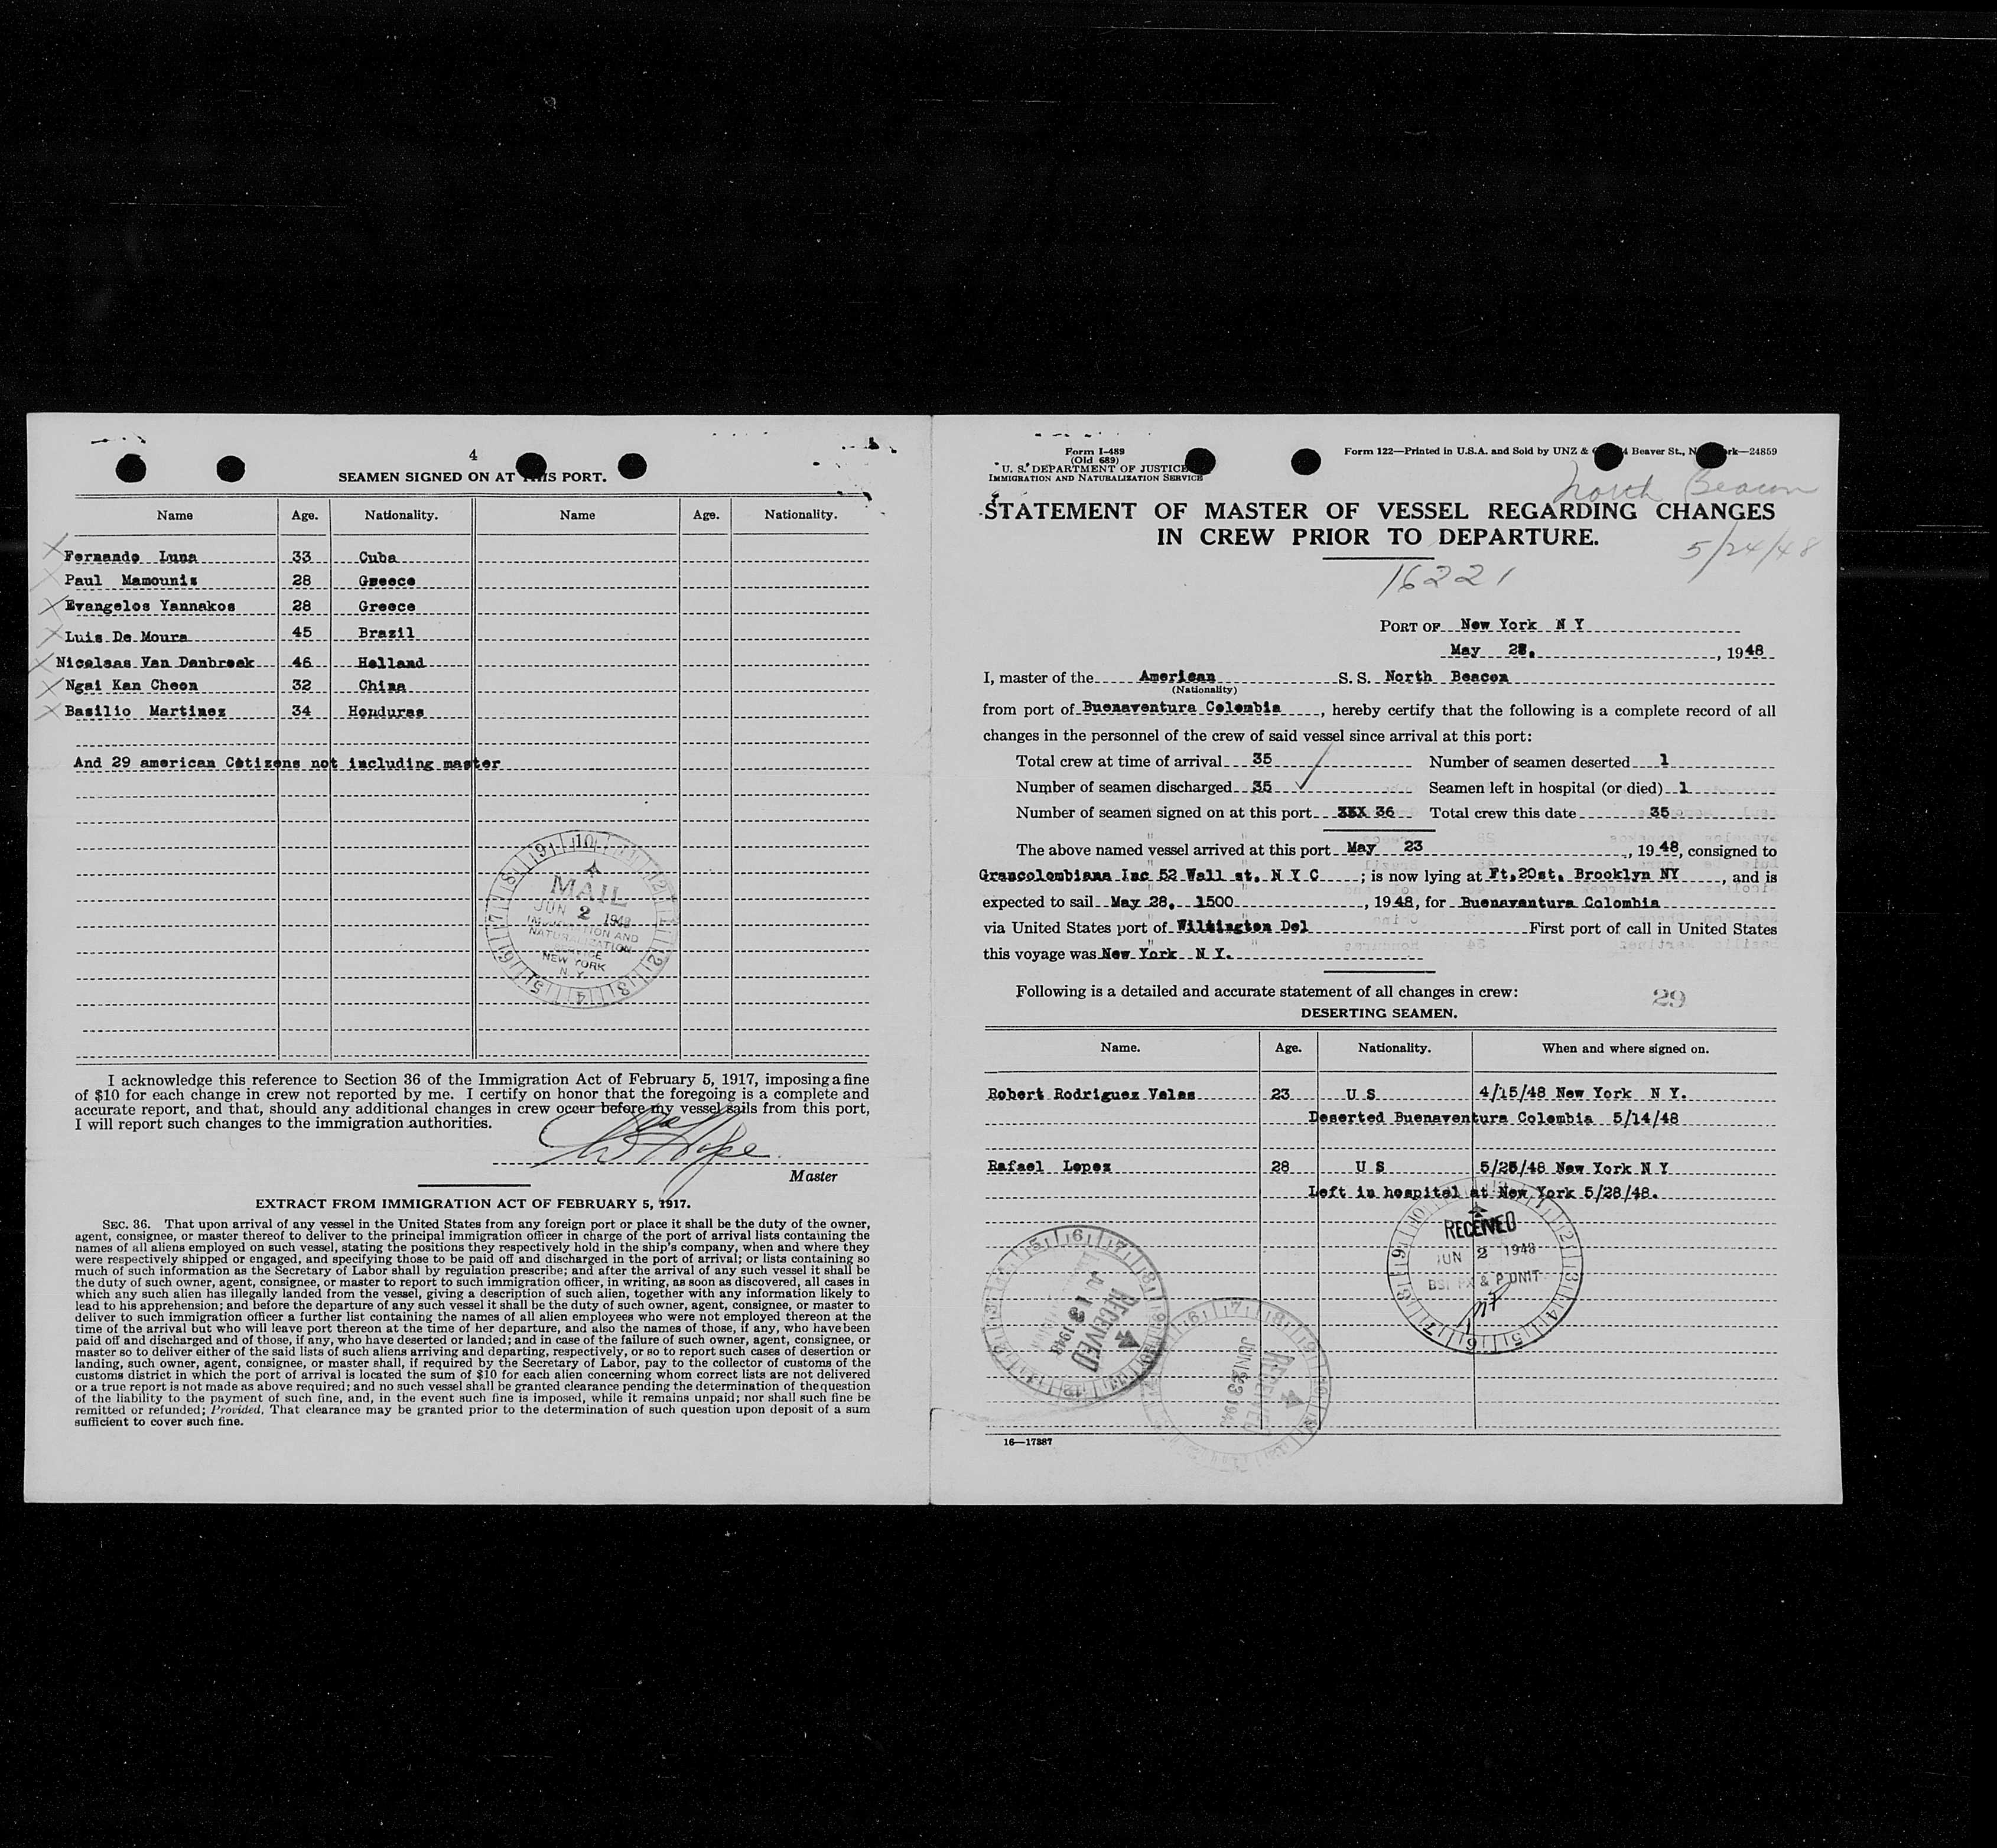 4
SEAMEN SIGNED ON AT THIS PORT.
Name Age. Nationality. Name Age. Nationality.
Fernando Luna 33 Cuba
Paul Mamounis 28 Greece
Evangelos Yannakos 28 Greece
Luis De Moura 45 Brazil
Nicolaas Van Danbroek 46 Holland
Ngai Kan Cheon 32 China
Basilio Martinez 34 Honduras
And 29 american Citizens not including master
10
MAIL
JUN 2 1948
IMMIGRATION AND
NATURALIZATION
SERVICE
NEW YORK
N. Y.
I acknowledge this reference to Section 36 of the Immigration Act of February 5, 1917, imposing a fine
of $10 for each change in crew not reported by me. I certify on honor that the foregoing is a complete and
accurate report, and that, should any additional changes in crew occur before my vessel sails from this port,
I will report such changes to the immigration authorities.
Master
EXTRACT FROM IMMIGRATION ACT OF FEBRUARY 5, 1917.
SEC. 36. That upon arrival of any vessel in the United States from any foreign port or place it shall be the duty of the owner,
agent, consignee, or master thereof to deliver to the principal immigration officer in charge of the port of arrival lists containing the
names of all aliens employed on such vessel, stating the positions they respectively hold in the ship's company, when and where they
were respectively shipped or engaged, and specifying those to be paid off and discharged in the port of arrival; or lists containing so
much of such information as the Secretary of Labor shall by regulation prescribe; and after the arrival of any such vessel it shall be
the duty of such owner, agent, consignee, or master to report to such immigration officer, in writing, as soon as discovered, all cases in
which any such alien has illegally landed from the vessel, giving a description of such alien, together with any information likely to
lead to his apprehension; and before the departure of any such vessel it shall be the duty of such owner, agent, consignee, or master to
deliver to such immigration officer a further list containing the names of all alien employees who were not employed thereon at the
time of the arrival but who will leave port thereon at the time of her departure, and also the names of those, if any, who have been
paid off and discharged and of those, if any, who have deserted or landed; and in case of the failure of such owner, agent, consignee, or
master so to deliver either of the said lists of such aliens arriving and departing, respectively, or so to report such cases of desertion or
landing, such owner, agent, consignee, or master shall, if required by the Secretary of Labor, pay to the collector of customs of the
customs district in which the port of arrival is located the sum of $10 for each alien concerning whom correct lists are not delivered
or a true report is not made as above required; and no such vessel shall be granted clearance pending the determination of the question
of the liability to the payment of such fine, and, in the event such fine is imposed, while it remains unpaid; nor shall such fine be
remitted or refunded; Provided, That clearance may be granted prior to the determination of such question upon deposit of a sum
sufficient to cover such fine.
Form I-489
(Old 689)
U. S. DEPARTMENT OF JUSTICE
IMMIGRATION AND NATURALIZATION SERVICE
Form 122—Printed in U.S.A. and Sold by UNZ & Beaver St., 24859
North Beacon
STATEMENT OF MASTER OF VESSEL REGARDING CHANGES
IN CREW PRIOR TO DEPARTURE.
5/24/48
16221
PORT OF New York N Y
May 28, 1948
I, master of the American S. S. North Beacon
(Nationality)
from port of Buenaventura Colombia, hereby certify that the following is a complete record of all
changes in the personnel of the crew of said vessel since arrival at this port:
Total crew at time of arrival 35 Number of seamen deserted 1
Number of seamen discharged 35 Seamen left in hospital (or died) 1
Number of seamen signed on at this port 36 Total crew this date 35
The above named vessel arrived at this port May 23, 1948, consigned to
Grancolombiana Inc 52 Wall st. N Y C; is now lying at Ft.20st. Brooklyn NY, and is
expected to sail May 28, 1500, 1948, for Buenavantura Colombia
via United States port of Wilmington Del First port of call in United States
this voyage was New York N Y.
Following is a detailed and accurate statement of all changes in crew:
29
DESERTING SEAMEN.
Name. Age. Nationality. When and where signed on.
Robert Rodriguez Valas 23 U S 4/15/48 New York N Y.
Deserted Buenaventura Colombia 5/14/48
Rafael Lopez 28 U S 5/25/48 New York N Y
Left in hospital at New York 5/28/48.
RECEIVED
JUN 2 1948
RECEIVED
1948
RECEIVED
JUN
16—17387